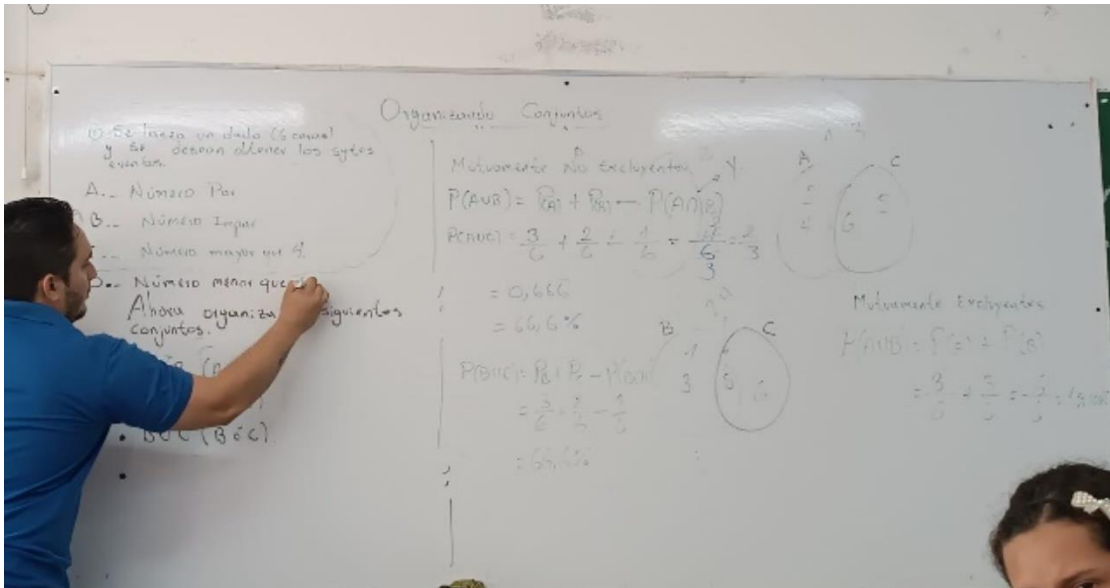 Organizando Conjuntos
Se lanza un dado (6 caras)
y se desean obtener los sgtes
eventos.
A.- Número Par
B.- Número Impar
Número mayor que 4.
D.- Número menor que
Ahora organiza siguientes
conjuntos.
• BUC (B ó C)
Mutuamente No Excluyentes
P(AUB) = P(A) + P(B) - P(A∩B)
P(AUC) = 3/6 + 2/6 - 1/6 = 4/6 = 2/3
= 0,666
= 66,6%
P(BUC) = PB + PC - P(B∩C)
= 3/6 + 2/6 - 1/6
= 66,6%
A C
2
4 6 5
B C
1
3 5 6
Mutuamente Excluyentes
P(AUB) = P(A) + P(B)